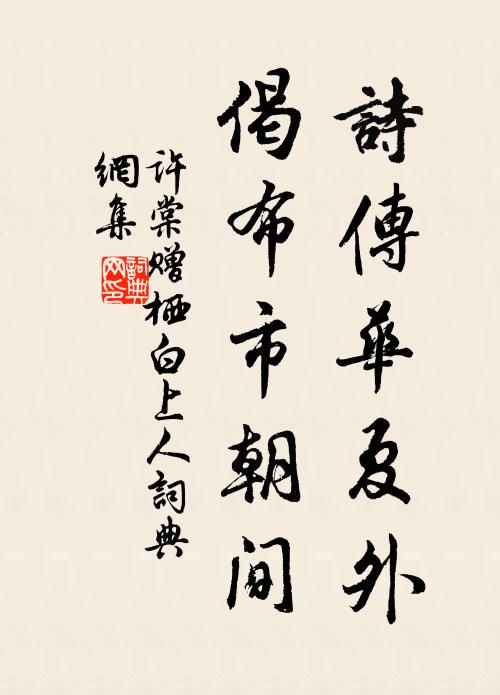 詩傳華夏外
偈布市朝間
许棠赠栖白上人詞典
網集
詞典網印